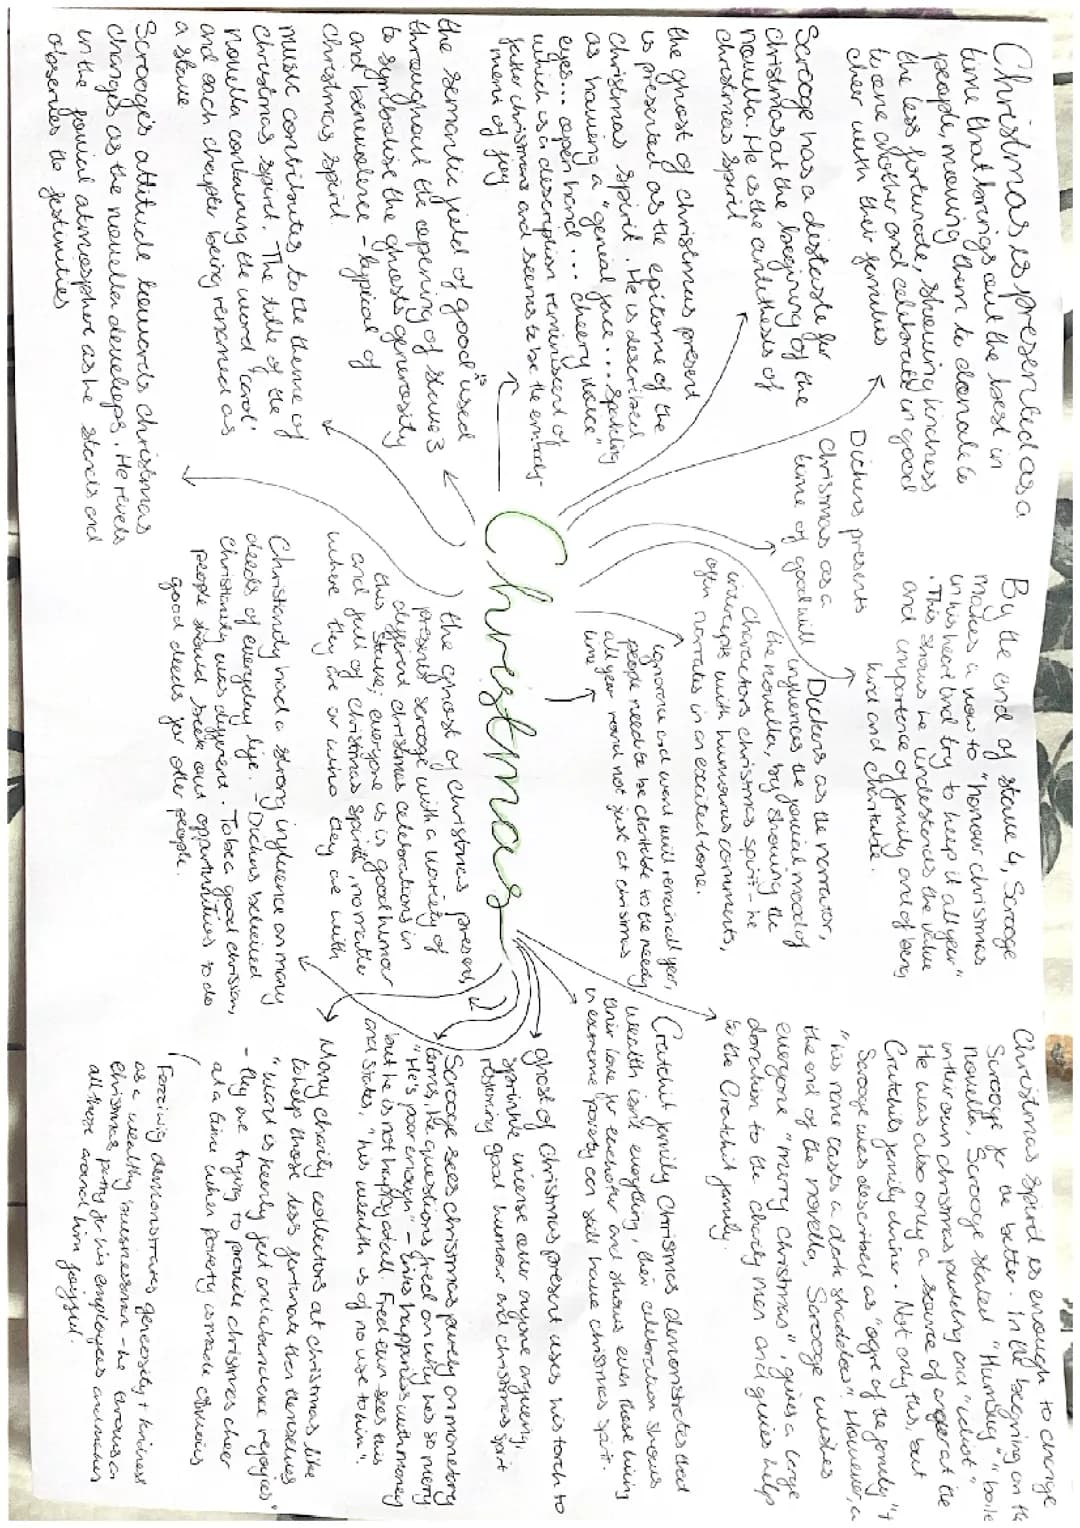 Christmas is presented as a
time that brings out the best in
people, moving them to donate to
the less fortunate, showing kindness
to one another and celebrate in good
cheer with their families
Scrooge has a distaste for
Christmas at the begining of the
novella. He is the antithesis of
christmas spirit
the ghost of christmas present
is presented as the epitome of the
Christmas spirit. He is described
as having a "genial face... sparkling
eyes... open hand... cheery voice"
which is a description reminiscent of
father christmas and seems to be the embody-
ment of joy
the semantic field of good is used
throughout the opening of stave 3
to symbolise the ghosts generosity
and benevolence - typical of
Christmas spirit
music contributes to the theme of
Christmas spirit. The title of the
novella containing the word 'carol'
and each chapter being renamed as
a stave
Scrooge's attitude towards christmas
changes as the novella develops. He revels
in the jovial atmosphere as he stands and
observes the festivities
Dickens presents
Christmas as a
time of goodwill
By the end of stave 4, Scrooge
makes a vow to "honour christmas
in his heart and try to keep it all year"
. This shows he understands the value
and importance of family and of being
kind and charitable.
Dickens as the narrator,
influences the jovial mood of
the novella, by showing the
characters christmas spirit - he
interrupts with humourous comments,
often narrates in an excited tone.
ignorance and want will remain all year,
people need to be charitable to the needy
all year round not just at christmas
time
Christmas
the ghost of Christmas present
presents scrooge with a variety of
different christmas celebrations in
this stave; everyone is in good humour
and full of christmas spirit, no matter
where they are or who they are with
Christianity had a strong influence on many
deeds of everyday life. - Dickens believed
Christianity was different. To be a good christian,
people should seek out opportunities to do
good deeds for other people.
Christmas spirit is enough to change
Scrooge for the better. In the beginning on the
novella, Scrooge stated "Humbug" "boile
in their own christmas pudding and "idiot"
He was also only a source of anger at the
Cratchits family dinner. Not only this, but
Scrooge was described as "ogre of the family" +
"his name casts a dark shadow" However, a
the end of the novella, Scrooge wishes
everyone "merry Christmas", gives a large
donation to the charity men and gives help
to the Cratchit family.
Cratchit family Christmas demonstrates that
wealth isn't everything, their celebration shows
their love for eachother and shows even those living
in extreme poverty can still have christmas spirit.
Ghost of Christmas present uses his torch to
sprinkle incense over anyone arguing,
restoring good humour and christmas spirit
Scrooge sees christmas purely on monetary
terms, He questions fred on why hes so merry
"He's poor enough" - links happiness with money
but he is not happy at all. Fred even sees this
and states, "his wealth is of no use to him".
Many charity collectors at christmas like
to help those less fortunate then themselves
"want is keenly felt and abundance rejoyces"
- they are trying to provide christmas cheer
at a time when poverty is made obvious
Fezziwig demonstrates generosity + kindness
as a wealthy businessman - he throws an
Christmas party for his employees and makes
all those around him joyful.